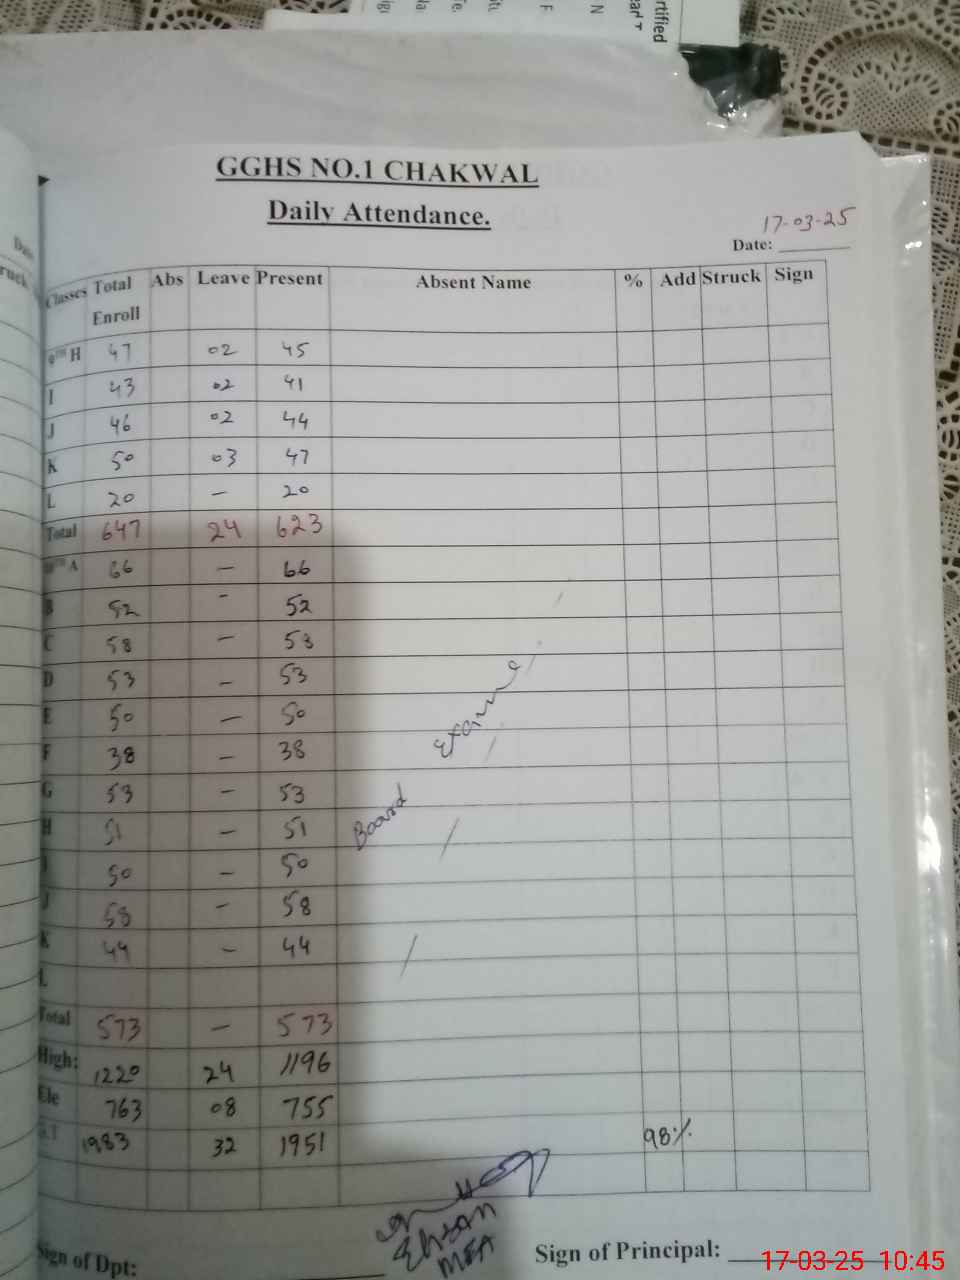 rtified
GGHS NO.1 CHAKWAL
Daily Attendance.
17-03-25
Date:
Classes Total Enroll Abs Leave Present Absent Name % Add Struck Sign
9TH H 47 02 45
I 43 02 41
J 46 02 44
K 50 03 47
L 20 – 20
Total 647 24 623
10TH A 66 – 66
B 52 – 52
C 58 – 58
D 53 – 53
E 50 – 50
F 38 – 38
G 53 – 53
H 51 – 51
I 50 – 50
J 58 – 58
K 44 – 44
L
Board Exams
Total 573 – 573
High: 1220 24 1196
Ele 763 08 755
G.T 1983 32 1951 98%
Ehsan
MEA
Sign of Dpt:
Sign of Principal:
17-03-25 10:45